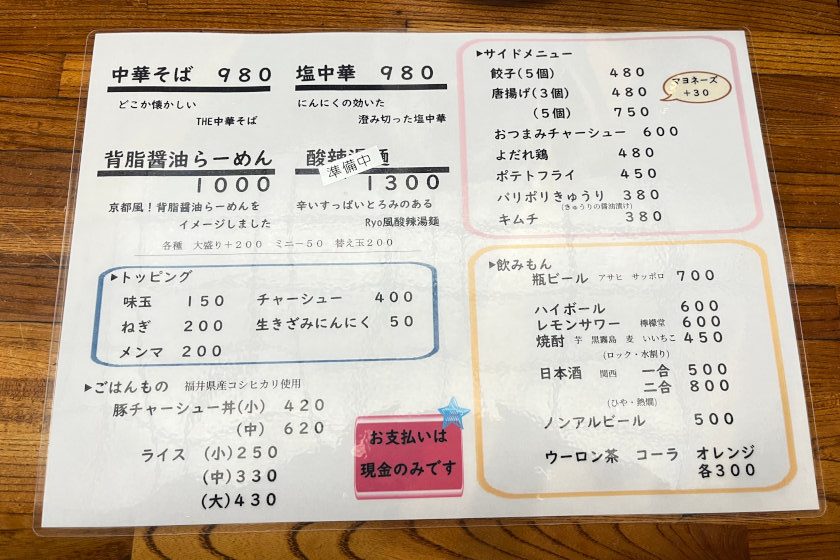 中華そば 980
どこか懐かしい
THE中華そば
塩中華 980
にんにくの効いた
澄み切った塩中華
背脂醤油らーめん
1000
京都風！背脂醤油らーめんを
イメージしました
酸辣湯麺
準備中
1300
辛いすっぱいとろみのある
Ryo風酸辣湯麺
各種 大盛り+200 ミニ-50 替え玉200
▶トッピング
味玉 150 チャーシュー 400
ねぎ 200 生きざみにんにく 50
メンマ 200
▶ごはんもの 福井県産コシヒカリ使用
豚チャーシュー丼(小) 420
(中) 620
ライス (小)250
(中)330
(大)430
お支払いは
現金のみです
▶サイドメニュー
餃子(5個) 480
唐揚げ(3個) 480
(5個) 750
マヨネーズ
+30
おつまみチャーシュー 600
よだれ鶏 480
ポテトフライ 450
パリポリきゅうり 380
(きゅうりの醤油漬け)
キムチ 380
▶飲みもん
瓶ビール アサヒ サッポロ 700
ハイボール 600
レモンサワー 檸檬堂 600
焼酎 芋 黒霧島 麦 いいちこ 450
(ロック・水割り)
日本酒 関西 一合 500
二合 800
(ひや・熱燗)
ノンアルビール 500
ウーロン茶 コーラ オレンジ
各300